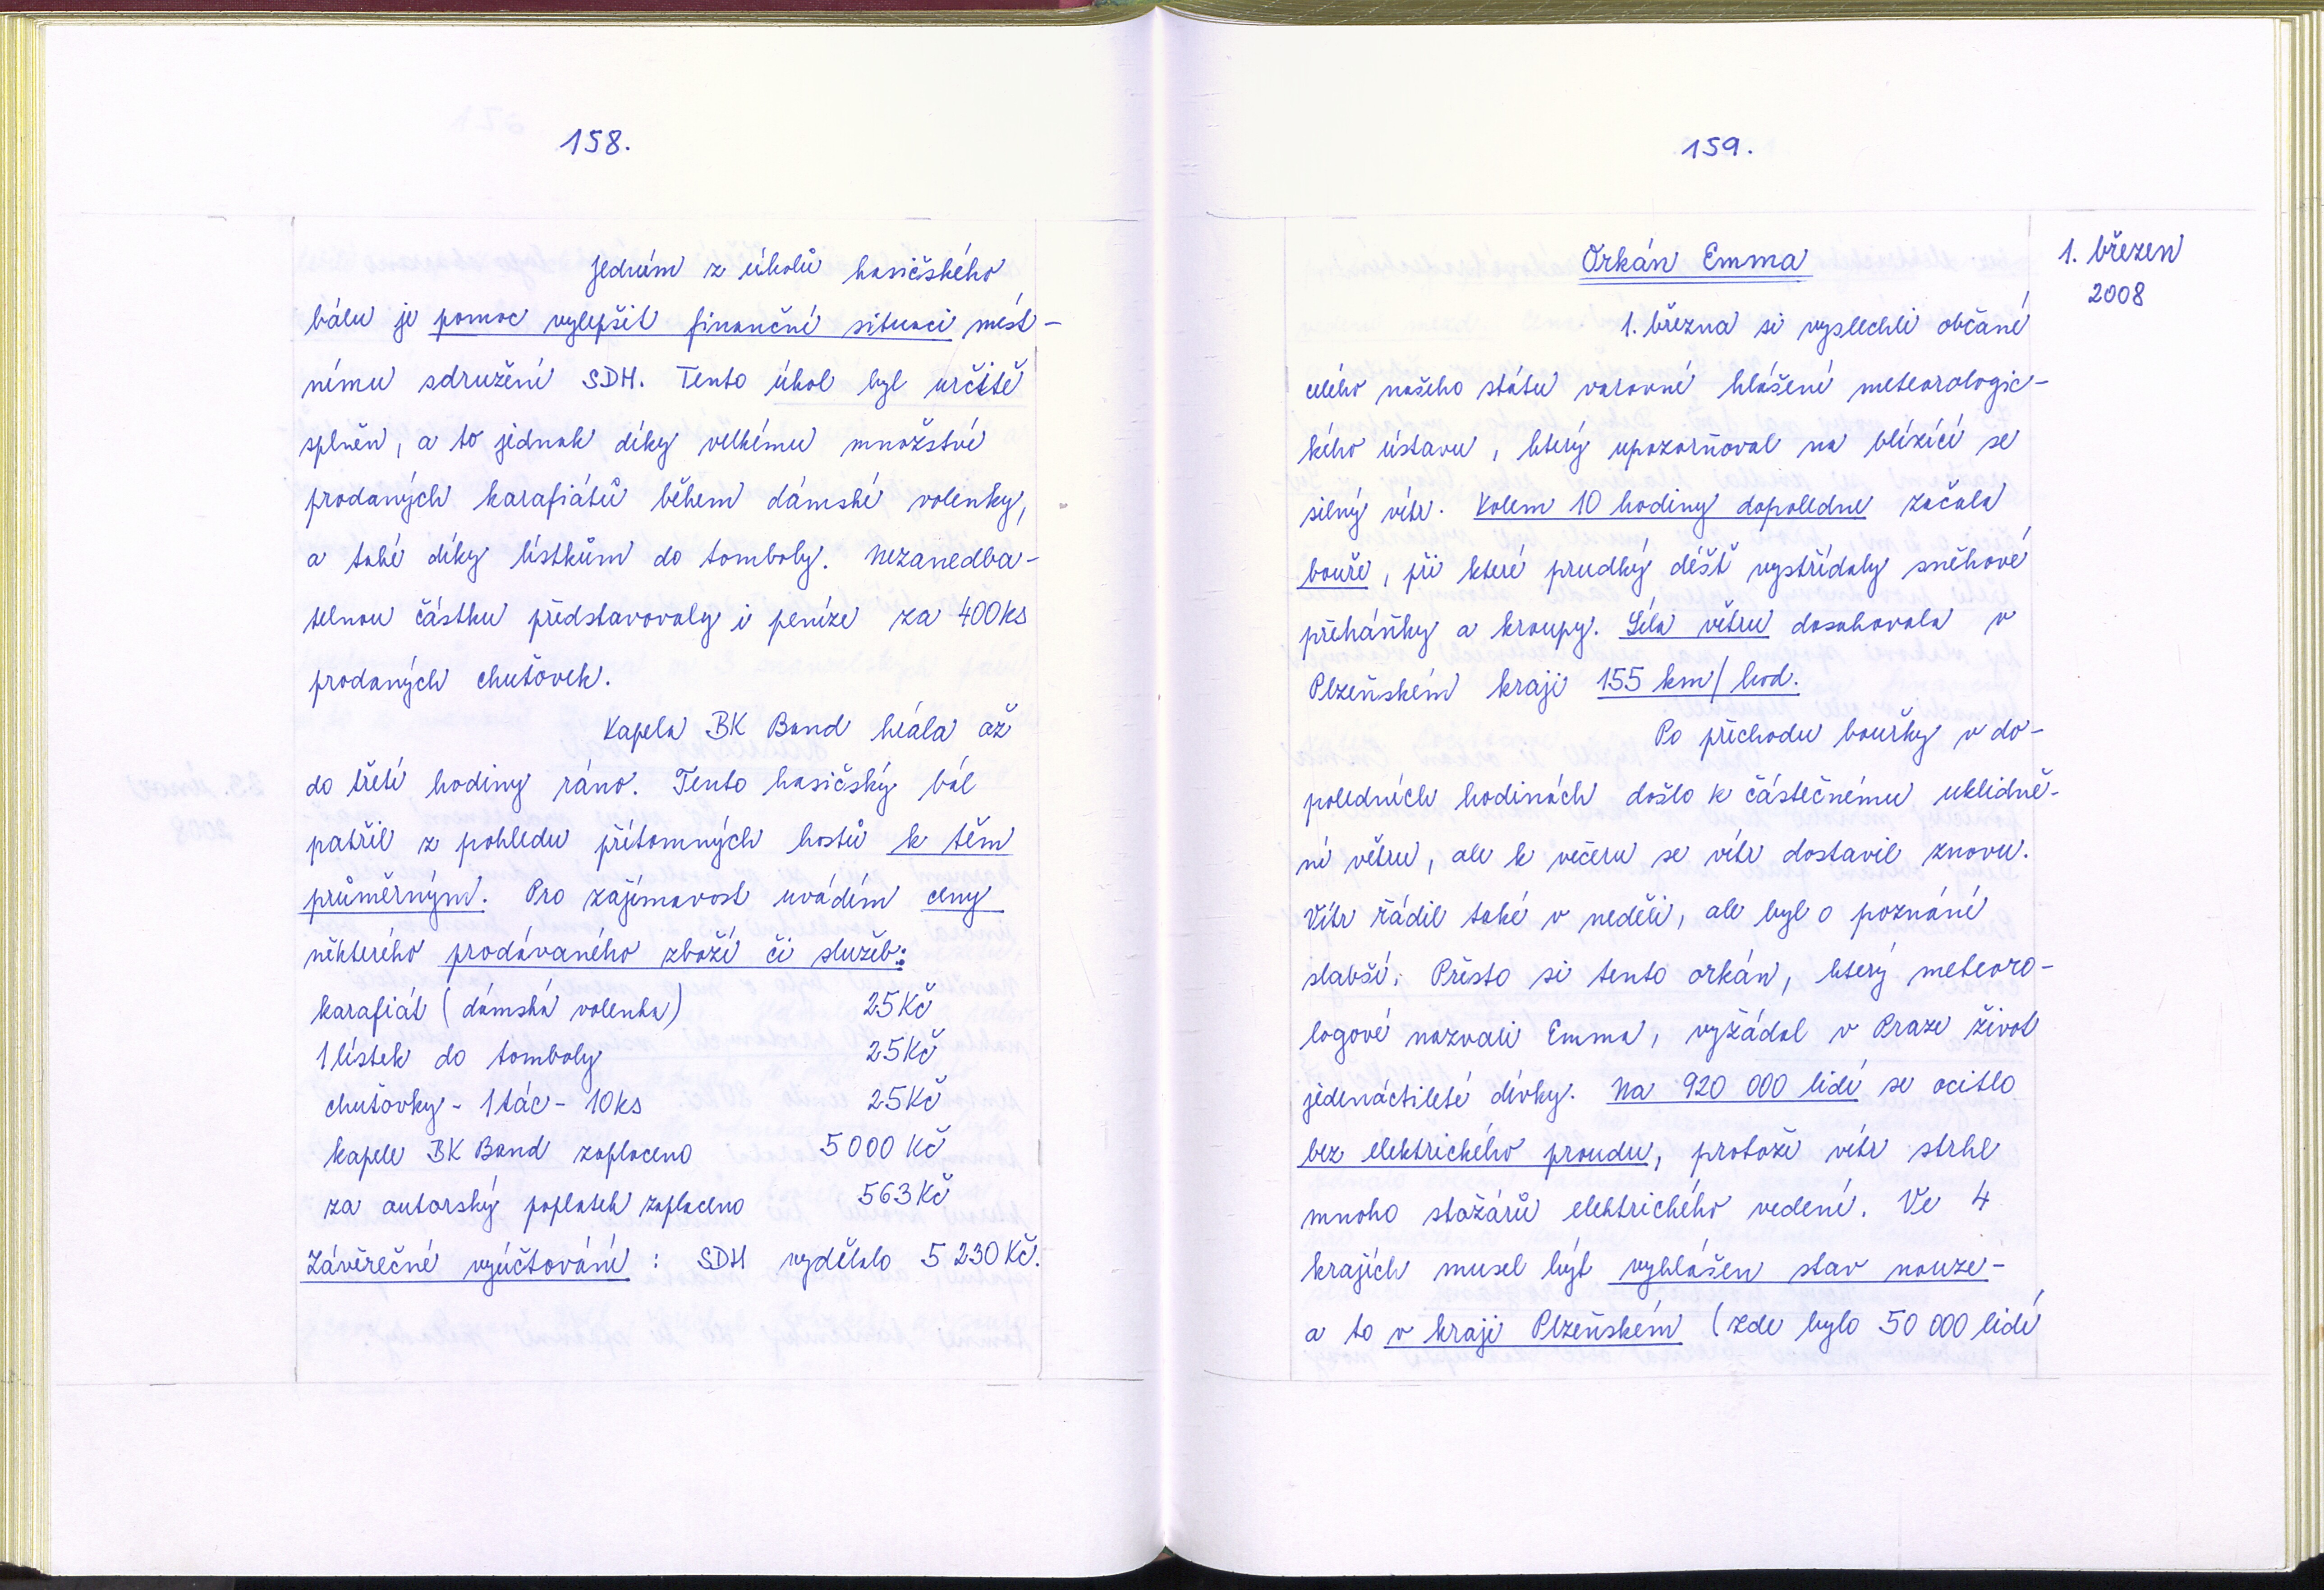 158.
Jedním z úkolů hasičského
bálu je pomoc vylepšit finanční situaci míst-
nímu sdružení SDH. Tento úkol byl určitě
splněn, a to jednak díky velkému množství
prodaných karafiátů během dámské volenky,
a také díky lístkům do tomboly. Nezanedba-
telnou částku představovaly i peníze za 400ks
prodaných chuťovek.
Kapela BK Band hrála až
do třetí hodiny ráno. Tento hasičský bál
patřil z pohledu přítomných hostů k těm
průměrným. Pro zajímavost uvádím ceny
některého prodávaného zboží či služeb:
karafiát (dámská volenka) 25Kč
1 lístek do tomboly 25Kč
chuťovky - 1 tác - 10ks 25Kč
kapele BK Band zaplaceno 5000 Kč
za autorský poplatek zaplaceno 563Kč
Závěrečné vyúčtování : SDH vydělalo 5 230Kč.
159.
Orkán Emma
1. březen
2008
1. března si vyslechli občané
celého našeho státu varovné hlášení meteorologic-
kého ústavu, který upozorňoval na blížící se
silný vítr. Kolem 10 hodiny dopoledne začala
bouře, při které prudký déšť vystřídaly sněhové
přeháňky a kroupy. Síla větru dosahovala v
Plzeňském kraji 155 km/hod.
Po příchodu bouřky v do-
poledních hodinách došlo k částečnému uklidně-
ní větru, ale k večeru se vítr dostavil znovu.
Vítr řádil také v neděli, ale byl o poznání
slabší. Přesto si tento orkán, který meteoro-
logové nazvali Emma, vyžádal v Praze život
jedenáctileté dívky. Na 920 000 lidí se ocitlo
bez elektrického proudu, protože vítr strhl
mnoho stožárů elektrického vedení. Ve 4
krajích musel být vyhlášen stav nouze-
a to v kraji Plzeňském (zde bylo 50 000 lidí